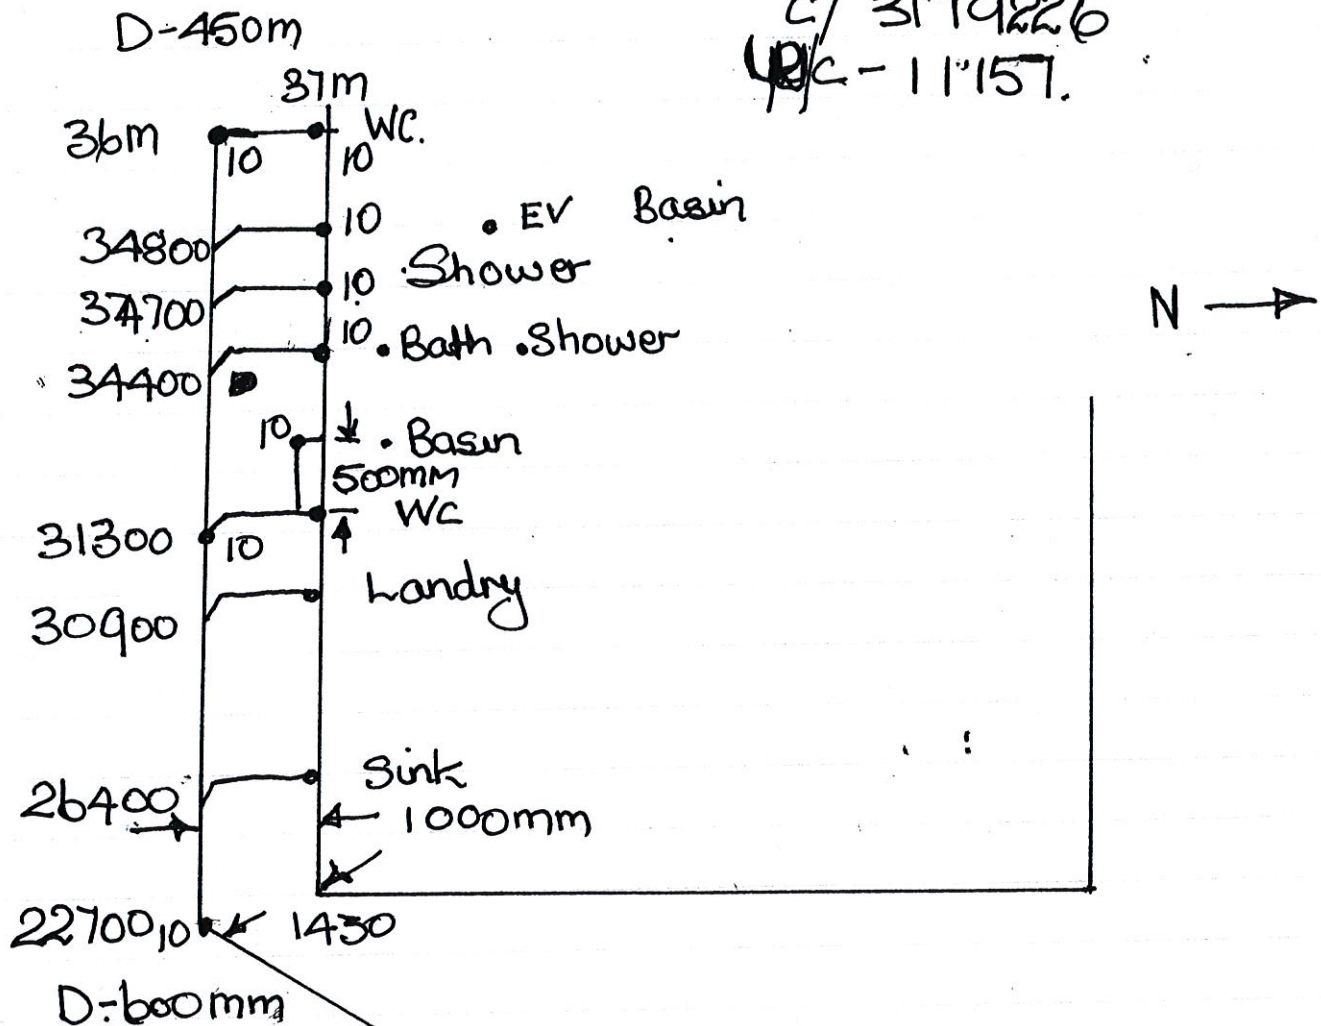 D-450m
C/ 3119226
C - 11157.
37m
36m
WC.
10
10
34800
10
• EV Basin
37700
10 Shower
34400
10 • Bath • Shower
10
• Basin
500mm
31300
10
WC
Landry
30900
N
Sink
26400
1000mm
22700,10
1430
D-600mm